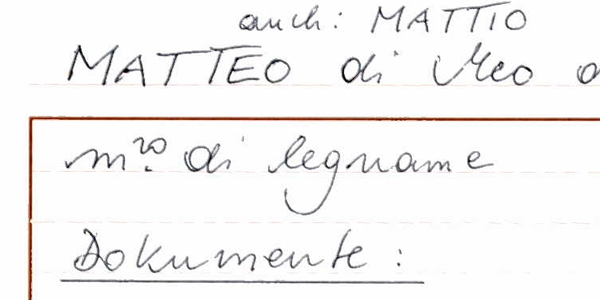 auch: MATTIO
MATTEO di Meo
m.ro di legname
Dokumente: